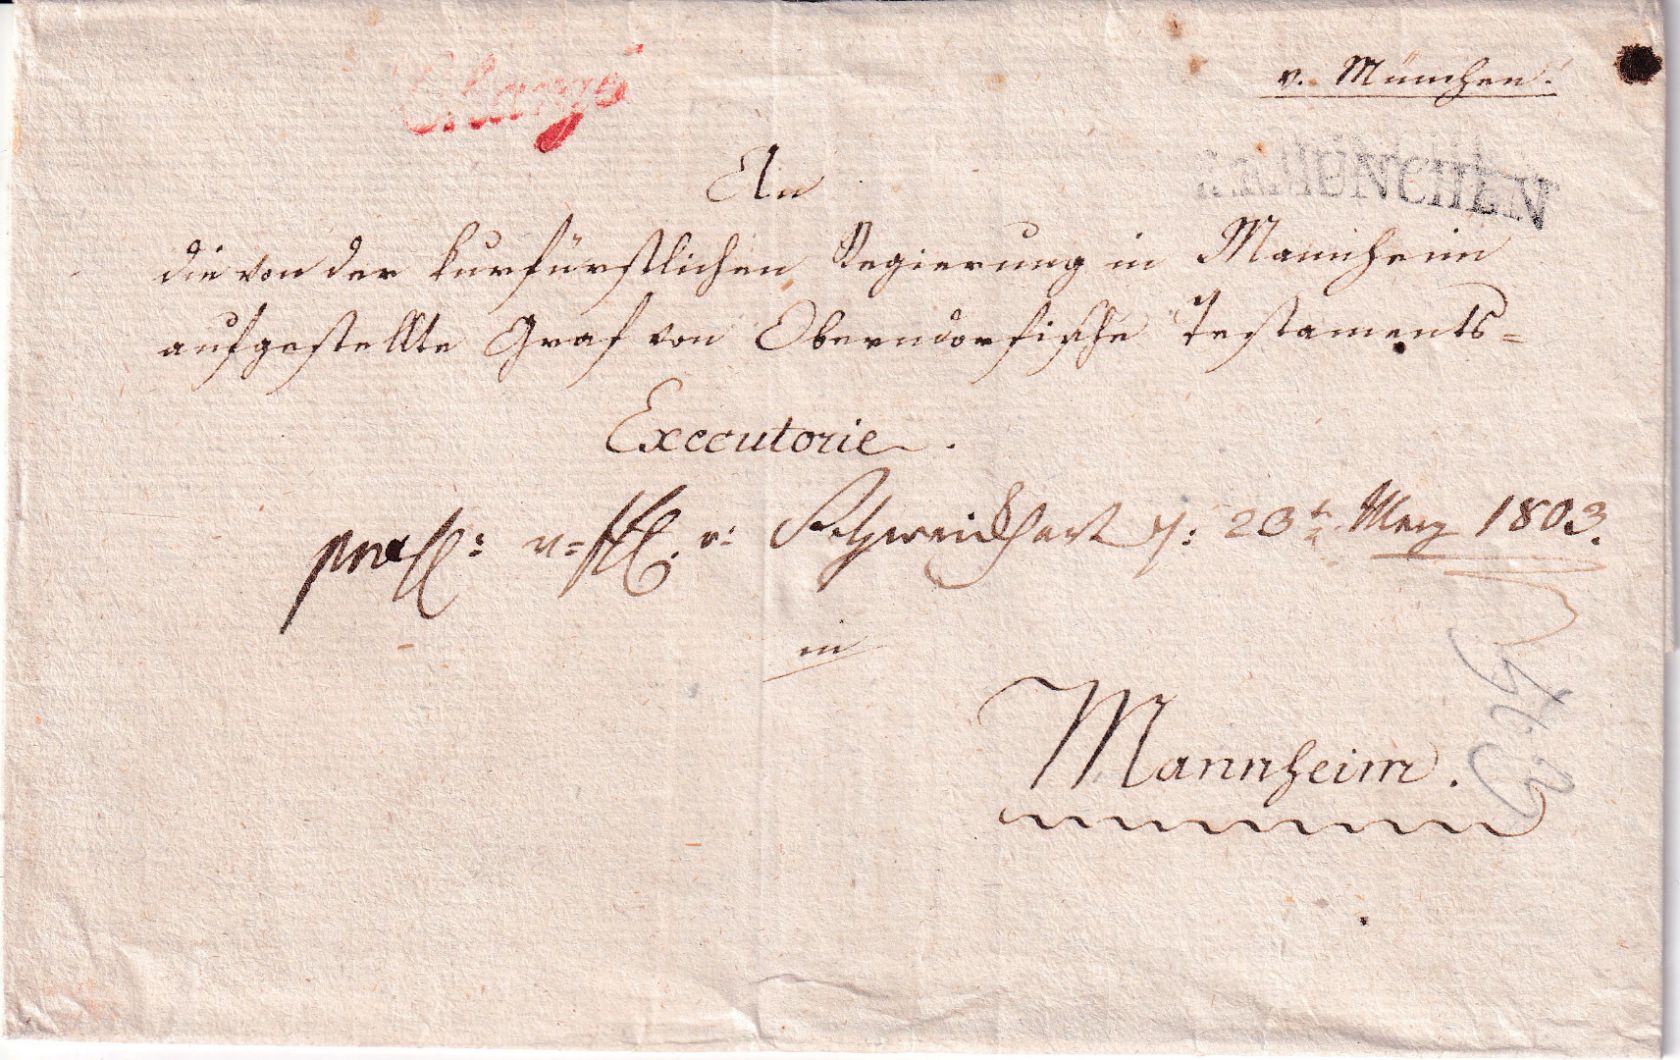 Chargé
v. München.
R.E.MÜNCHEN
An
die von der kurfürstlichen Regierung in Mannheim
aufgestellte Graf von Oberndorfische Testaments=
Executorie.
v: Schweickhart 23t Merz 1803.
in
Mannheim.